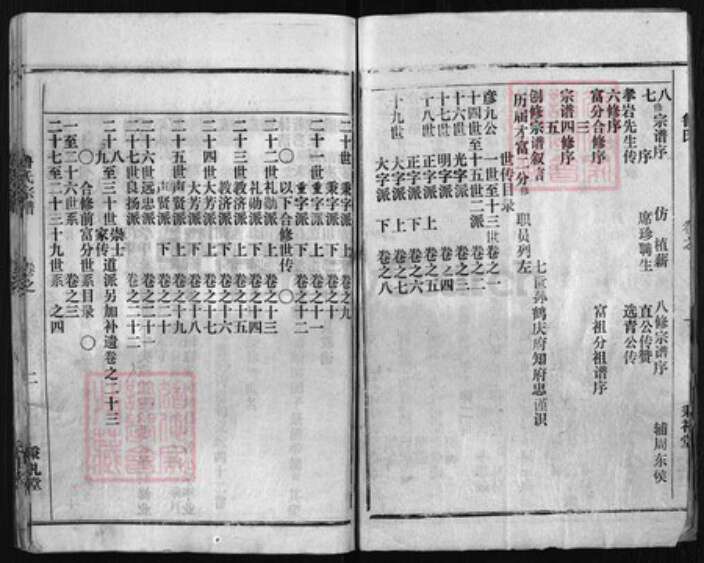 八修宗谱序 仿植薪 八修宗谱序 辅周东侯
七 序 席珍聘生 直公传赞
孝岩先生传 选青公传
六修序
富分合修序 富祖分祖谱序
三
宗谱四修序
五
创修宗谱叙 七世孙鹤庆府知府忠谨识
历届才富二分修 职员列左
世传目录
彦九公 一世至十三世卷之一
十四世至十五世二派 卷之二
十六世 光字派 卷之三
十七世 明字派 卷之四
十八世 正字派 上 卷之五
正字派 下
十九世 大字派 上 卷之七
大字派 下 卷之八
二十世 秉字派 上 卷之九
秉字派 下 卷之十
二十一世 重字派 上 卷之十一
重字派 下 卷之十二
〇 以下合修世传 〇
二十二世 礼勋派 上 卷之十三
礼勋派 下 卷之十四
二十三世 教济派 上 卷之十五
教济派 下 卷之十六
二十四世 大芳派 上 卷之十七
大芳派 下 卷之十八
二十五世 声贤派 上 卷之十九
声贤派 下
二十六世 远忠派 卷之二十一
二十七世 良扬派 卷之二十二
二十八九至三十世 崇士道派另加补遗 卷之二十三
家传
〇 合修前富分世系目录 〇
一至二十六世系 卷之三
二十七至二十三十九世系 之四
氏宗谱 卷之 二 秉礼堂